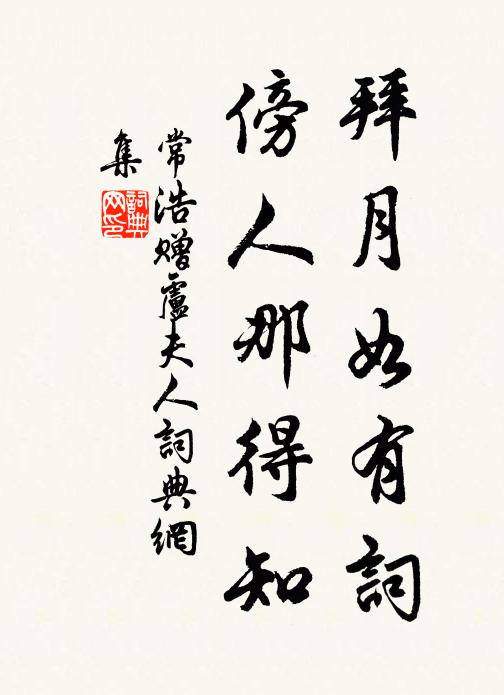 拜月如有詞
傍人那得知
常浩贈盧夫人詞典網
集
詞典
网印